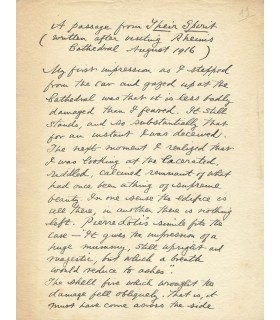 A passage from Their Spirit
(written after visiting Rheims
Cathedral August 1916)
My first impression as I stepped
from the car and gazed up at the
Cathedral was that it is less badly
damaged than I feared. It still
stands, and so substantially that
for an instant I was deceived.
The next moment I realized that
I was looking at the lacerated,
riddled, calcined remnant of what
had once been a thing of supreme
beauty. In one sense the edifice is
all there, in another there is nothing
left. Pierre Loti's simile fits the
case — "It gives the impression of a
huge mummy, still upright and
majestic, but which a breath
would reduce to ashes".
The shell fire which wrought the
damage fell obliquely. That is, it
must have come across the side